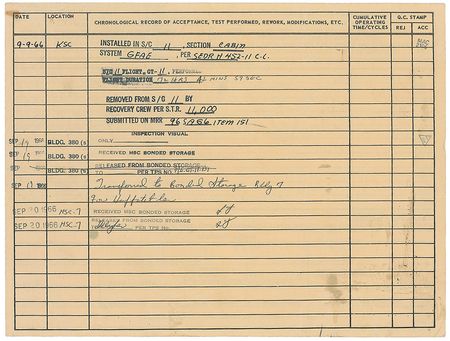 DATE LOCATION CHRONOLOGICAL RECORD OF ACCEPTANCE, TEST PERFORMED, REWORK, MODIFICATIONS, ETC. CUMULATIVE OPERATING TIME/CYCLES Q.C. STAMP
REJ ACC
9-9-66 KSC INSTALLED IN S/C 11, SECTION CABIN
SYSTEM GFAE, PER SEDR H 452-11 C.L.
11 FLIGHT, GT-11, PERFORMED
FLIGHT DURATION 72 HRS 42 MINS 59 SEC
REMOVED FROM S/C 11 BY
RECOVERY CREW PER S.T.R. 11,000
SUBMITTED ON MRR 96 ITEM 151
INSPECTION VISUAL
SEP 1966 BLDG. 380 (s) ONLY
SEP BLDG. 380 (s) RECEIVED MSC BONDED STORAGE
RELEASED FROM BONDED STORAGE
BLDG. 380 (s) TO PER TPS NO.
SEP 1966 Transferred to Bonded Storage Bldg 7
SEP 20 1966 MSC-7 RECEIVED MSC BONDED STORAGE
RELEASED FROM BONDED STORAGE
SEP 20 1966 MSC-7 PER TPS No.